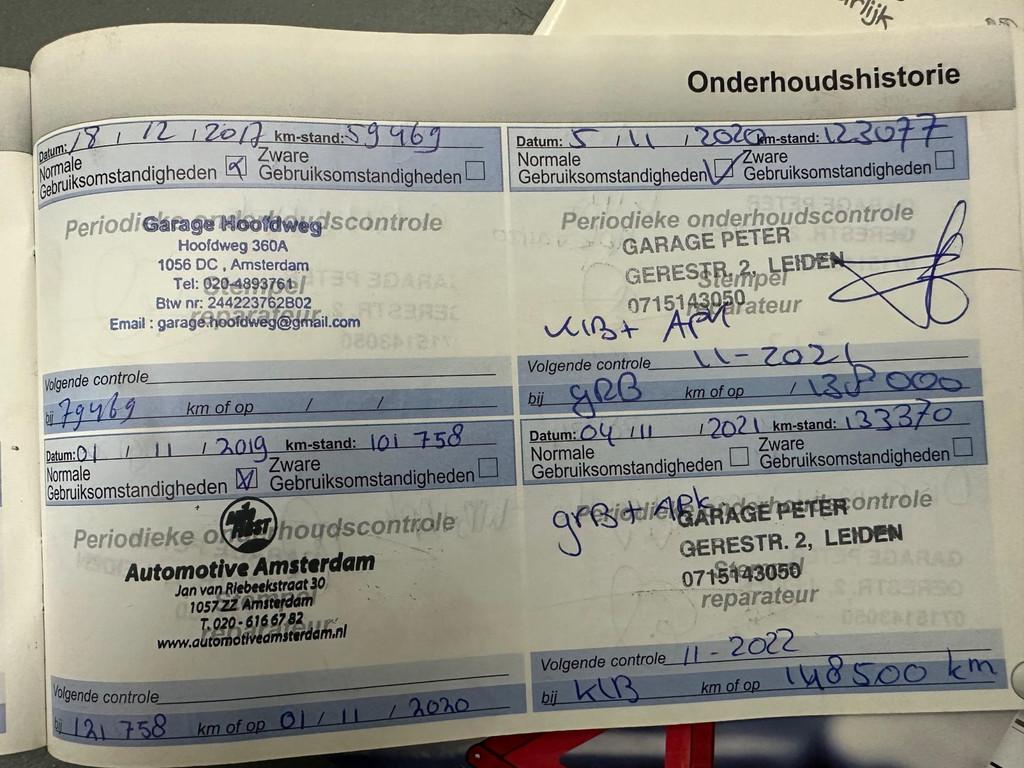 rlijk
Onderhoudshistorie
Datum: 18 / 12 / 2017 km-stand: 59469
Normale Gebruiksomstandigheden Zware Gebruiksomstandigheden
Periodieke onderhoudscontrole
Garage Hoofdweg
Hoofdweg 360A
1056 DC , Amsterdam
Tel: 020-4893761
Stempel
Btw nr: 244223762B02
reparateur
Email : garage.hoofdweg@gmail.com
Volgende controle
bij 79469 km of op / /
Datum: 01 / 11 / 2019 km-stand: 101 758
Normale Gebruiksomstandigheden Zware Gebruiksomstandigheden
Periodieke onderhoudscontrole
Automotive Amsterdam
Jan van Riebeekstraat 30
1057 ZZ Amsterdam
T. 020 - 616 67 82
reparateur
www.automotiveamsterdam.nl
Volgende controle
bij 121 758 km of op 01 / 11 / 2020
Datum: 5 / 11 / 2020 km-stand: 123077
Normale Gebruiksomstandigheden Zware Gebruiksomstandigheden
Periodieke onderhoudscontrole
GARAGE PETER
GERESTR. 2, LEIDEN
Stempel
0715143050
reparateur
KlB + APK
Volgende controle 11-2021
bij gRB km of op / 138000
Datum: 04 / 11 / 2021 km-stand: 133370
Normale Gebruiksomstandigheden Zware Gebruiksomstandigheden
grB + APK
Periodieke onderhoudscontrole
GARAGE PETER
GERESTR. 2, LEIDEN
Stempel
0715143050
reparateur
Volgende controle 11-2022
bij KlB km of op 148500 km